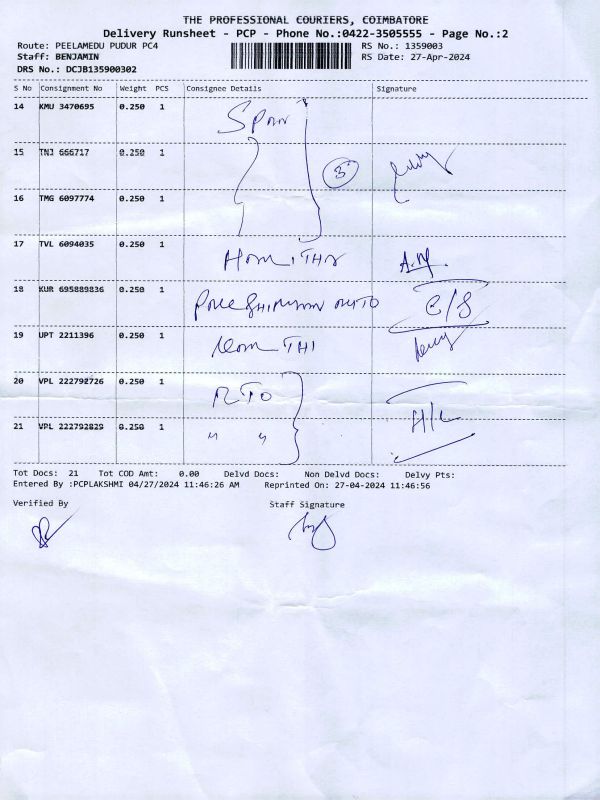 THE PROFESSIONAL COURIERS, COIMBATORE
Delivery Runsheet - PCP - Phone No.:0422-3505555 - Page No.:2
Route: PEELAMEDU PUDUR PC4 RS No.: 1359003
Staff: BENJAMIN RS Date: 27-Apr-2024
DRS No.: DCJB135900302
S No Consignment No Weight PCS Consignee Details Signature
14 KMU 3470695 0.250 1
15 TNJ 666717 0.250 1 3
16 TMG 6097774 0.250 1
17 TVL 6094035 0.250 1 A.M.
18 KUR 695889836 0.250 1 C/S
19 UPT 2211396 0.250 1
20 VPL 222792726 0.250 1 RTO
21 VPL 222792829 0.250 1 " "
Tot Docs: 21 Tot COD Amt: 0.00 Delvd Docs: Non Delvd Docs: Delvy Pts:
Entered By :PCPLAKSHMI 04/27/2024 11:46:26 AM Reprinted On: 27-04-2024 11:46:56
Verified By Staff Signature